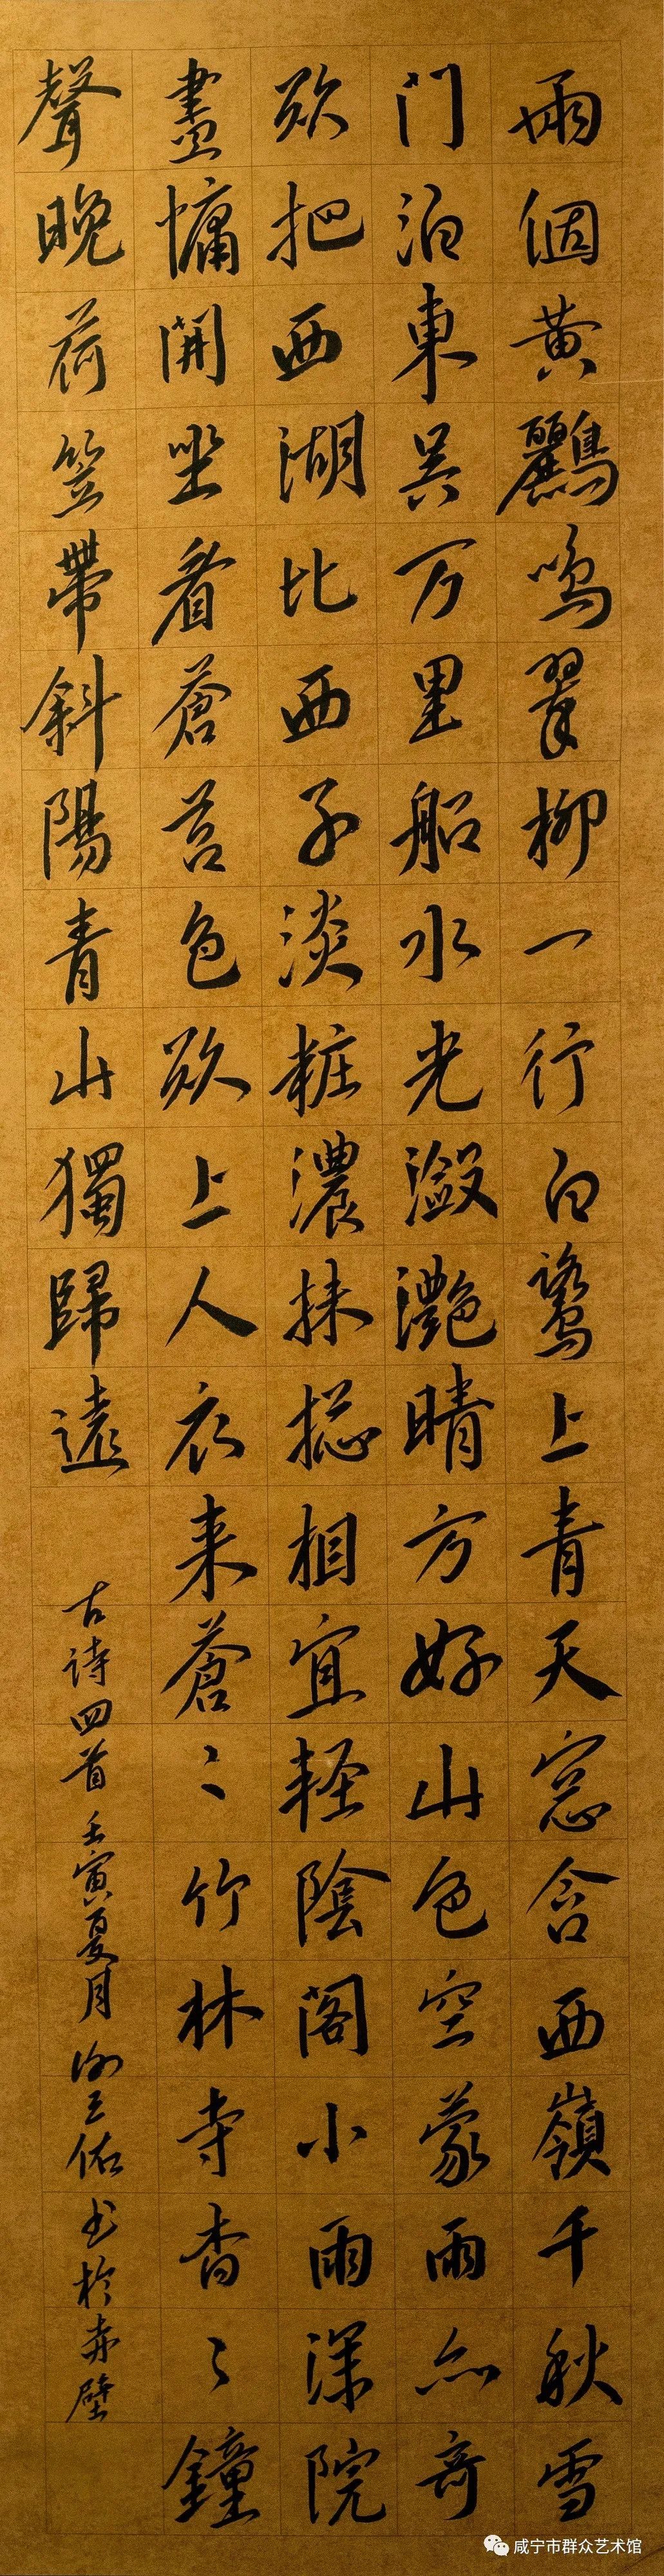 兩個黄鸝鳴翠柳一行白鷺上青天窓含西嶺千秋雪
门泊東吴万里船水光瀲灧晴方好山色空蒙雨亦奇
欲把西湖比西子淡粧濃抹揔相宜軽陰阁小雨深院
晝慵開坐看蒼苔色欲上人衣来蒼〻竹林寺杳〻鐘
聲晚荷笠帶斜陽青山獨歸遠
古诗四首 壬寅夏月 谢王佑 书於赤壁
咸宁市群众艺术馆